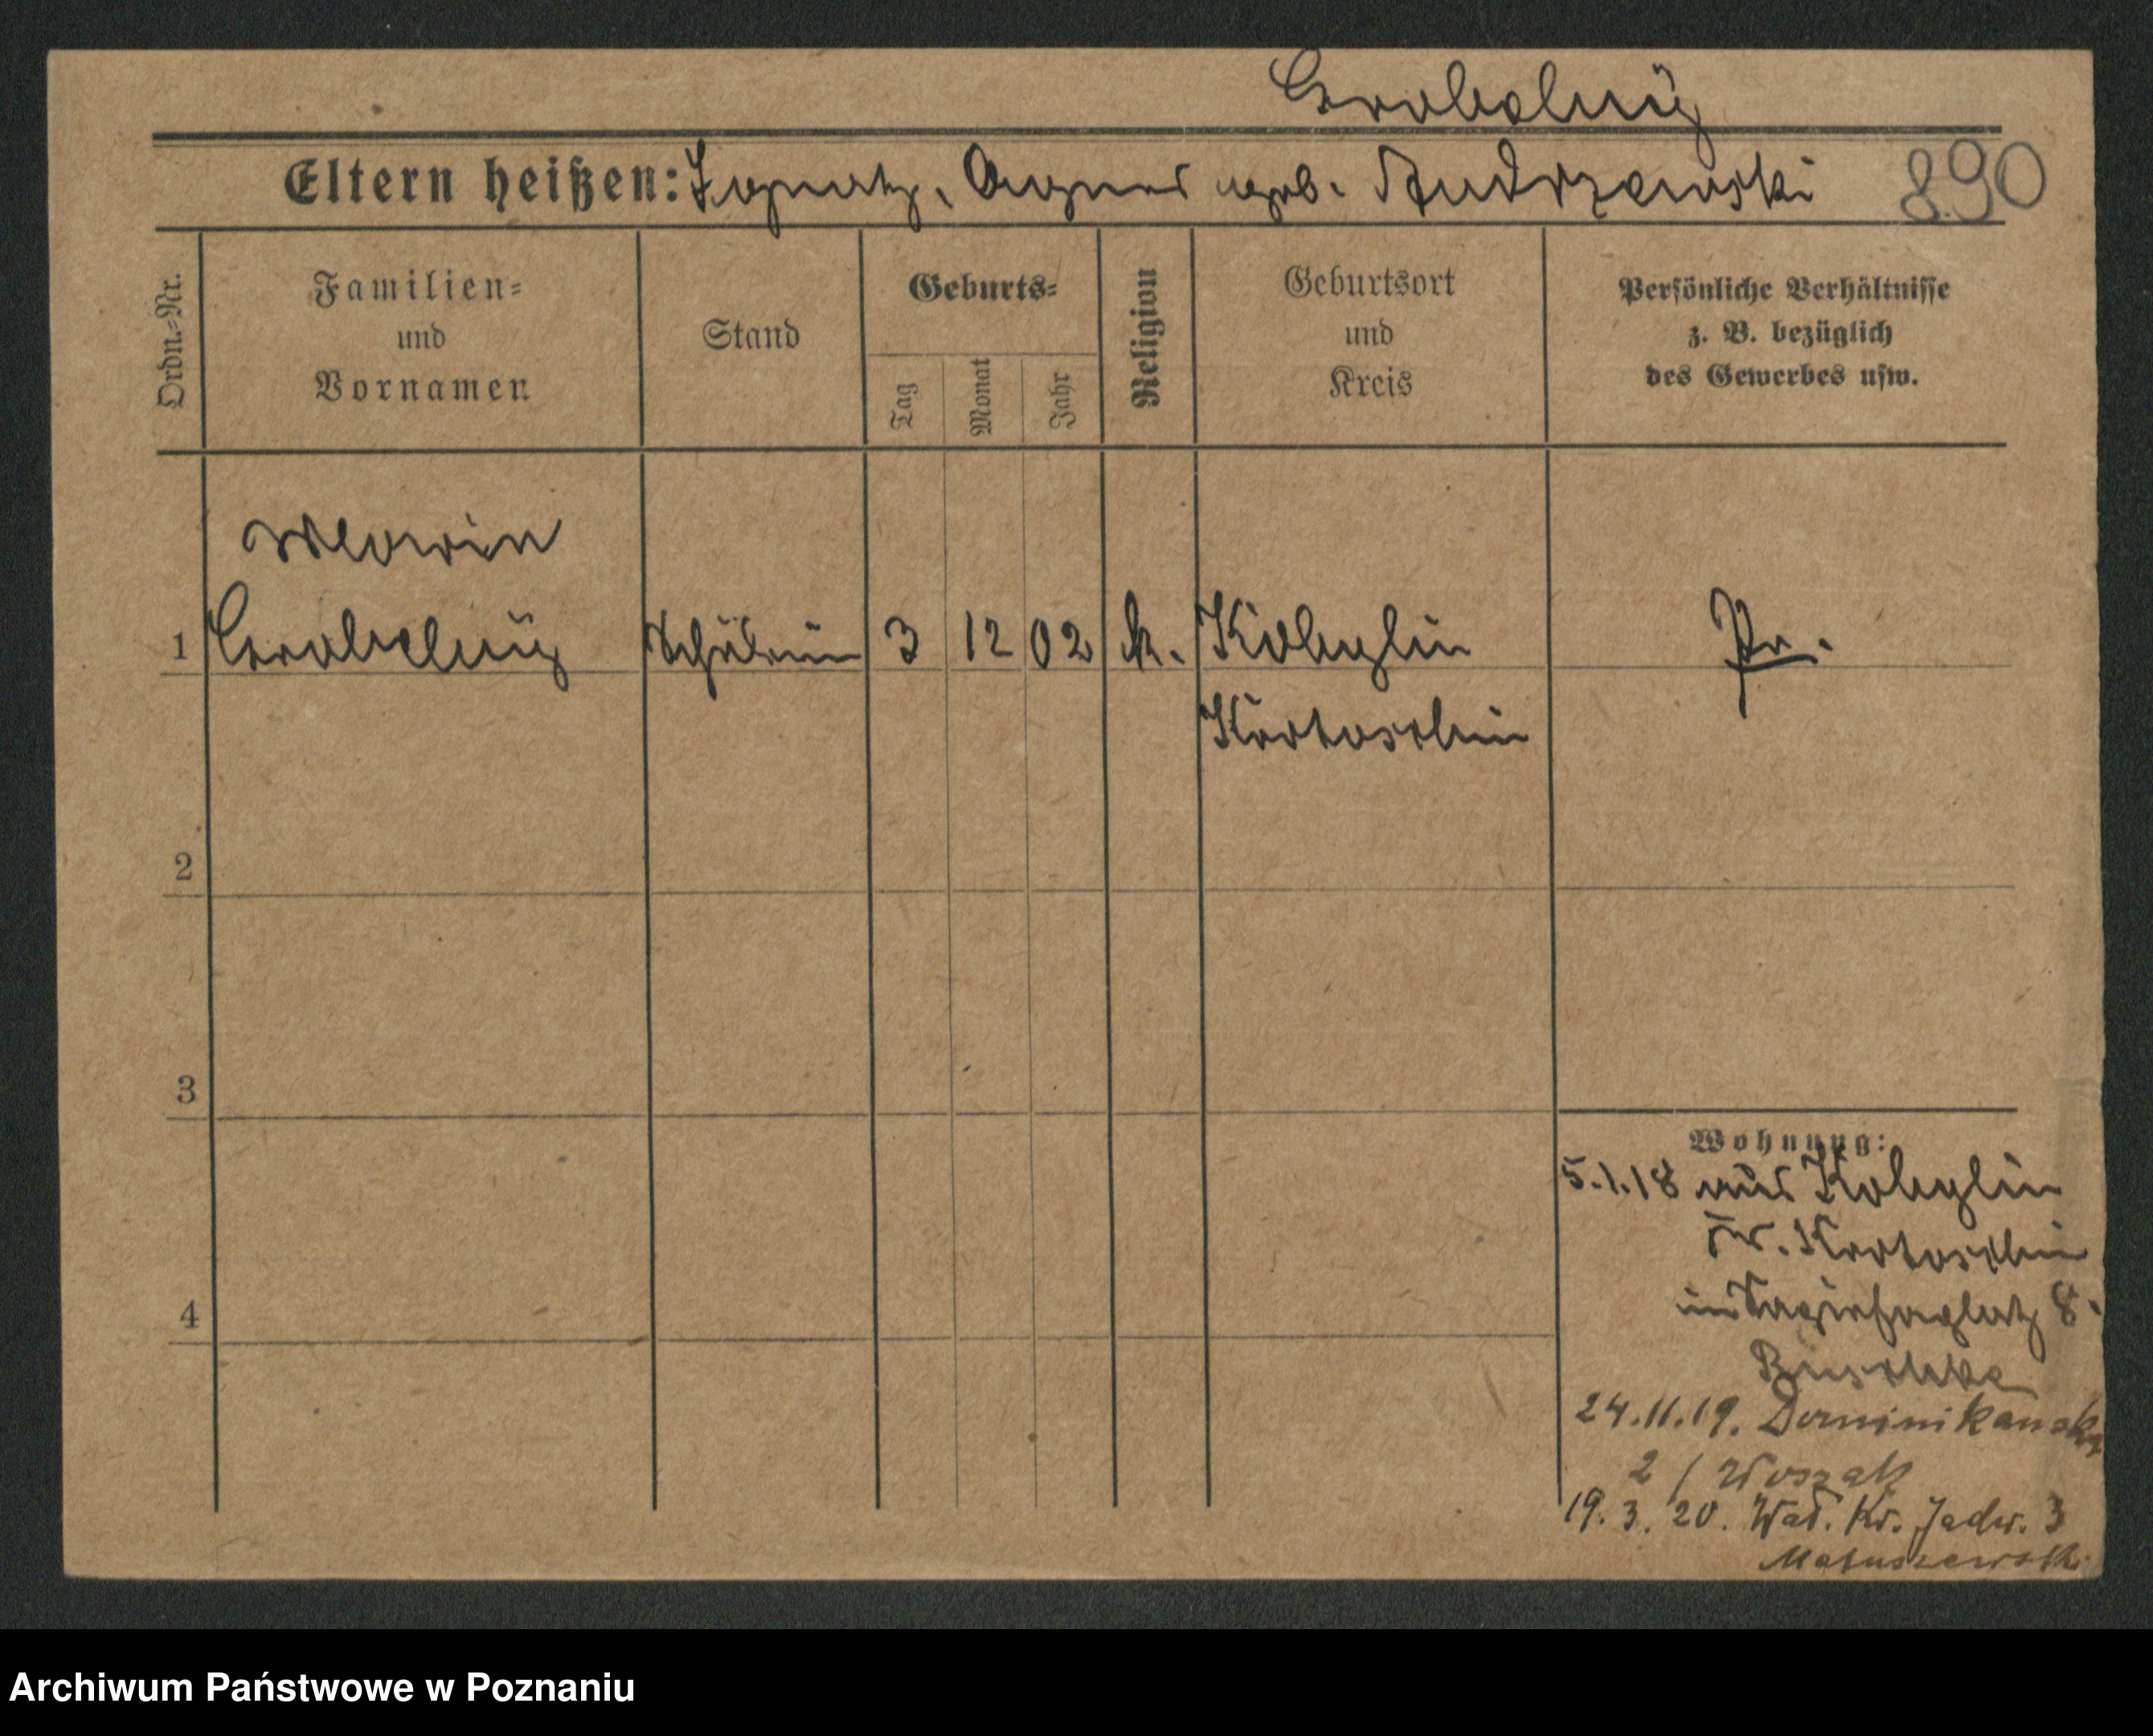 Grobelny
Eltern heißen: Ignatz, Agnes geb. Andrzewski 890
Ordn.-Nr.
Familien- und Vornamen
Stand
Geburts-
Tag
Monat
Jahr
Religion
Geburtsort und Kreis
Persönliche Verhältnisse z. B. bezüglich des Gewerbes usw.
Maria
1 Grobelny Schülerin 3 12 02 k. Kobylin Pr.
Krotoschin
2
3
4
Wohnung:
5.1.18 aus Kobylin
Kr. Krotoschin
in Sapiehaplatz 8.
Buschke
24.11.19. Dominikańska
2 / Woszak
19.3.20. Wad. Kr. Jadw. 3
Matuszewski
Archiwum Państwowe w Poznaniu